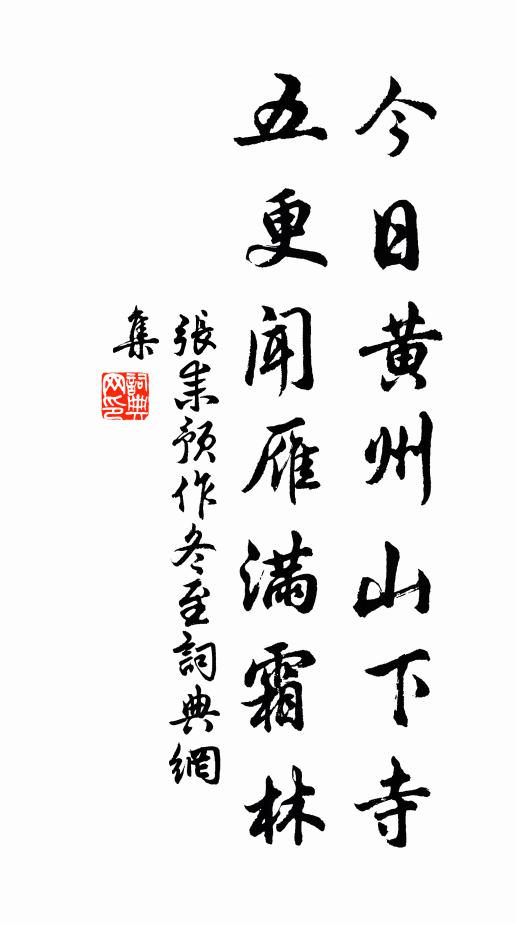 今日黄州山下寺
五更闻雁满霜林
張耒预作冬至詞典網
集
詞典
网印